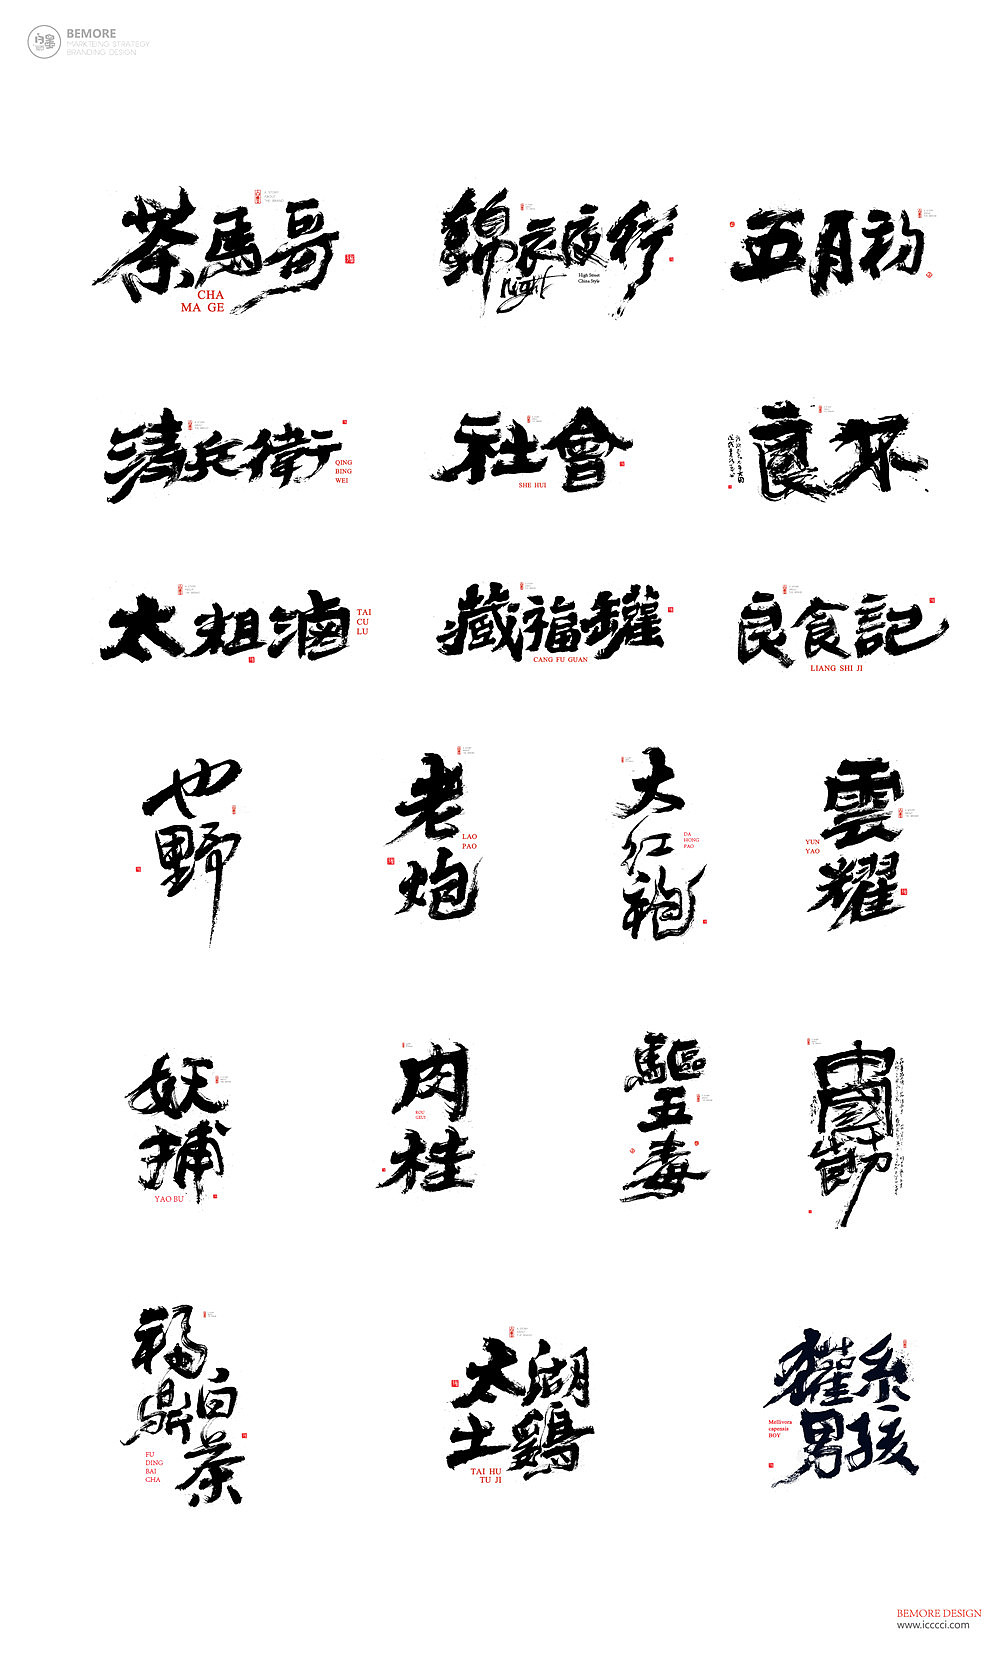 BEMORE
MARKTEING STRATEGY
BRANDING DESIGN
茶馬哥
CHA
MA GE
錦衣夜行
night
High Street
China Style
五月初
清兵衛
QING
BING
WEI
社會
SHE HUI
良不
太粗滷
TAI
CU
LU
藏福罐
CANG FU GUAN
良食記
LIANG SHI JI
也野
老炮
LAO
PAO
大红袍
DA
HONG
PAO
雲耀
YUN
YAO
妖捕
YAO BU
肉桂
ROU
GUI
驅五毒
中國
福鼎白茶
FU
DING
BAI
CHA
太湖
土鷄
TAI HU
TU JI
獾系
男孩
Mellivora
capensis
BOY
BEMORE DESIGN
www.icccci.com